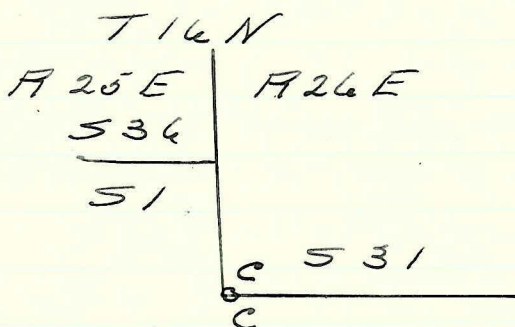 T 16 N
R 25 E R 26 E
S 36
S 1
C S 31
C